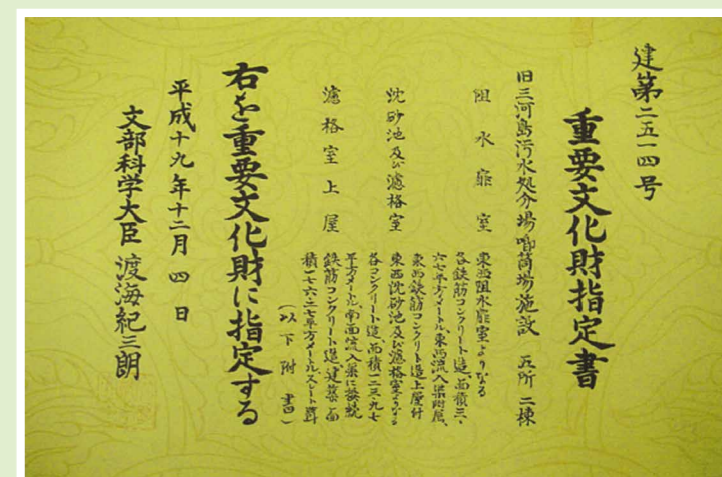 建第二五一四号
重要文化財指定書
旧三河島汚水処分場喞筒場施設 五所 二棟
阻水扉室
東西阻水扉室よりなる
各鉄筋コンクリート造、面積三・
六七平方メートル、東西流入渠附属、
東西鉄筋コンクリート造上屋付
沈砂池及び濾格室
東西沈砂池及び濾格室よりなる
各コンクリート造、面積一二三・九七
平方メートル、南面流入渠に接続
濾格室上屋
鉄筋コンクリート造、建築面
積一七六・二七平方メートル、スレート葺
(以下附書)
右を重要文化財に指定する
平成十九年十二月四日
文部科学大臣 渡海紀三朗